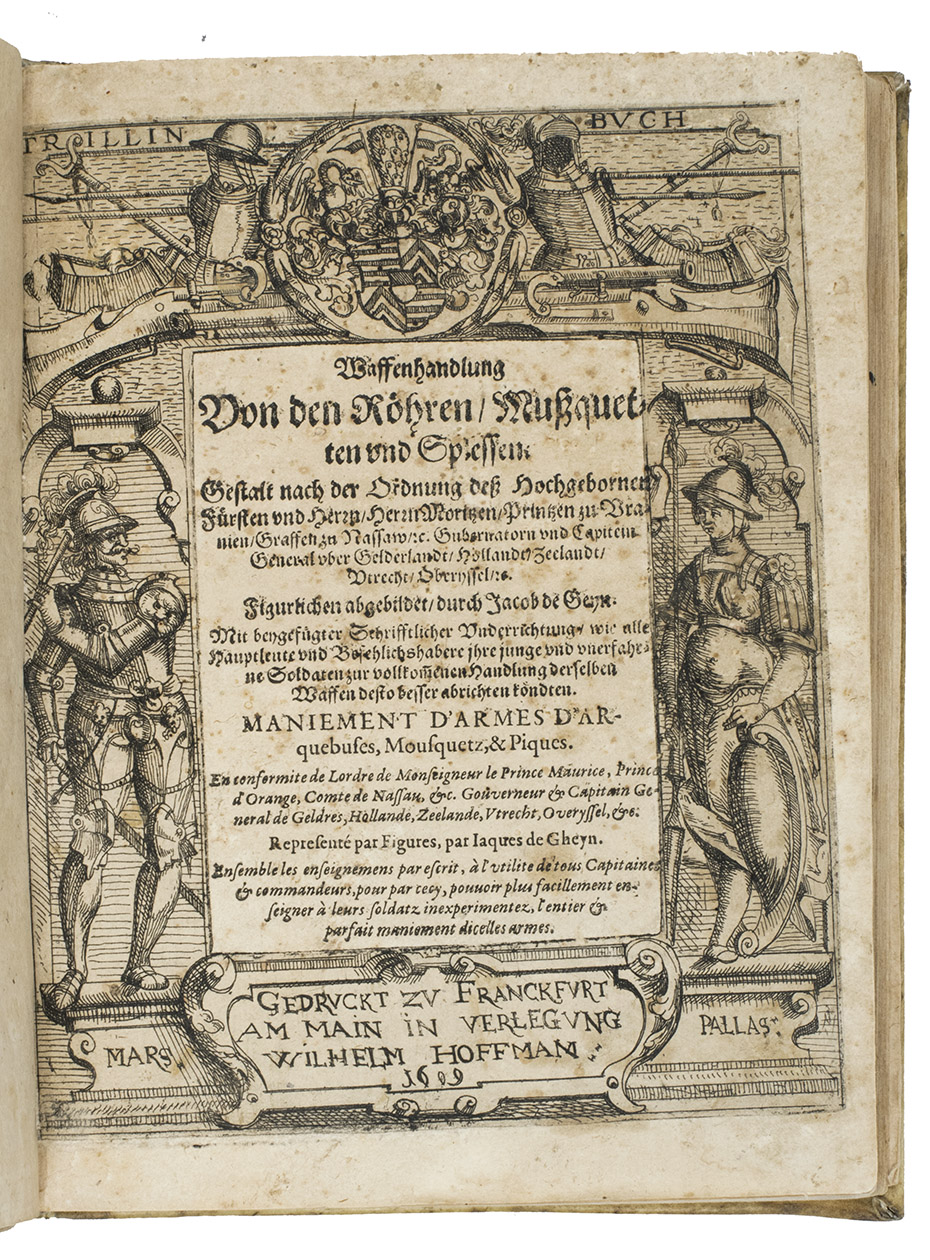 TRILLIN BVCH
Waffenhandlung
Von den Röhren/ Mußquet-
ten vnd Spiessen.
Gestalt nach der Ordnung deß Hochgebornen
Fürsten vnd Herrn/ Herrn Moritzen/ Printzen zu Vra-
nien/ Graffen zu Nassaw/ ꝛc. Gubernatorn vnd Capitein
General vber Gelderlandt/ Hollandt/ Zeelandt/
Vtrecht/ Overyssel/ ꝛc.
Figurlichen abgebildet/ durch Jacob de Geyn.
Mit beygefügter Schrifftlicher Vnderrichtung/ wie alle
Hauptleute vnd Befehlichshabere jhre junge vnd vnerfahr-
ne Soldaten zur vollkom̃enen Handlung derselben
Waffen desto besser abrichten köndten.
MANIEMENT D'ARMES D'AR-
quebuses, Mousquetz, & Piques.
En conformite de Lordre de Monseigneur le Prince Maurice, Prince
d'Orange, Comte de Nassau, &c. Gouverneur & Capitain Ge-
neral de Geldres, Hollande, Zeelande, Vtrecht, Overyssel, &c.
Representé par Figures, par Iaques de Gheyn.
Ensemble les enseignemens par escrit, à l'vtilite de tous Capitaines
& commandeurs, pour par cecy, pouuoir plus facillement en-
seigner à leurs soldatz inexperimentez, l'entier &
parfait maniement dicelles armes.
GEDRVCKT ZV FRANCKFVRT
AM MAIN IN VERLEGVNG
WILHELM HOFFMAM
1609
MARS
PALLAS